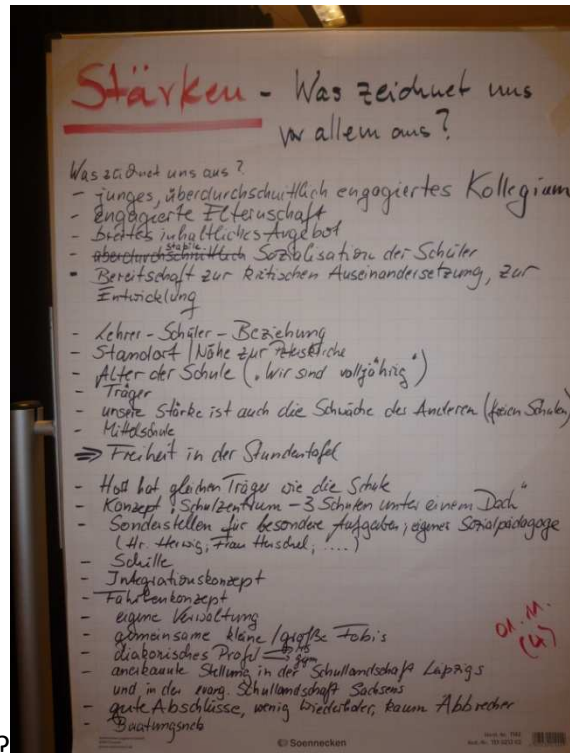 Stärken - Was zeichnet uns
vor allem aus?
Was zeichnet uns aus?
- junges, überdurchschnittlich engagiertes Kollegium
- engagierte Elternschaft
- breites inhaltliches Angebot
- überdurchschnittlich stabile Sozialisation der Schüler
- Bereitschaft zur kritischen Auseinandersetzung, zur
Entwicklung
- Lehrer-Schüler-Beziehung
- Standort / Nähe zur
- Alter der Schule („Wir sind volljährig")
- Träger
- unsere Stärke ist auch die Schwäche des Anderen (freien Schulen)
- Mittelschule
⇒ Freiheit in der Stundentafel
- Hort hat gleichen Träger wie die Schule
- Konzept „Schulzentrum - 3 Schulen unter einem Dach"
- Sonderstellen für besondere Aufgaben; eigener Sozialpädagoge
(Hr. Herwig, Frau Henschel, ....)
- Schille
- Integrationskonzept
- Fahrtenkonzept
- eigene Verwaltung
- gemeinsame kleine / große Fobis
- diakonisches Profil → MS
→ Gym
- anerkannte Stellung in der Schullandschaft Leipzigs
und in der evang. Schullandschaft Sachsens
- gute Abschlüsse, wenig Wiederholer, kaum Abbrecher
- Beratungsnetz
01.11.
(4)
Soennecken
?